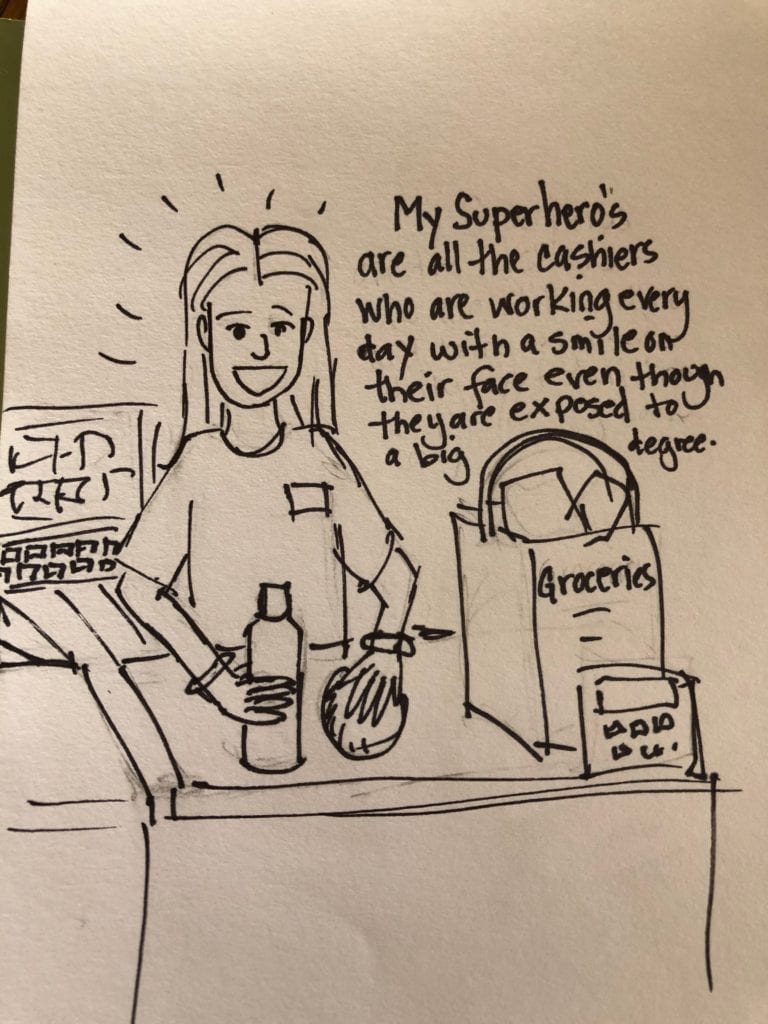 My Superhero's
are all the cashiers
who are working every
day with a smile on
their face even though
they are exposed to
a big degree.
Groceries